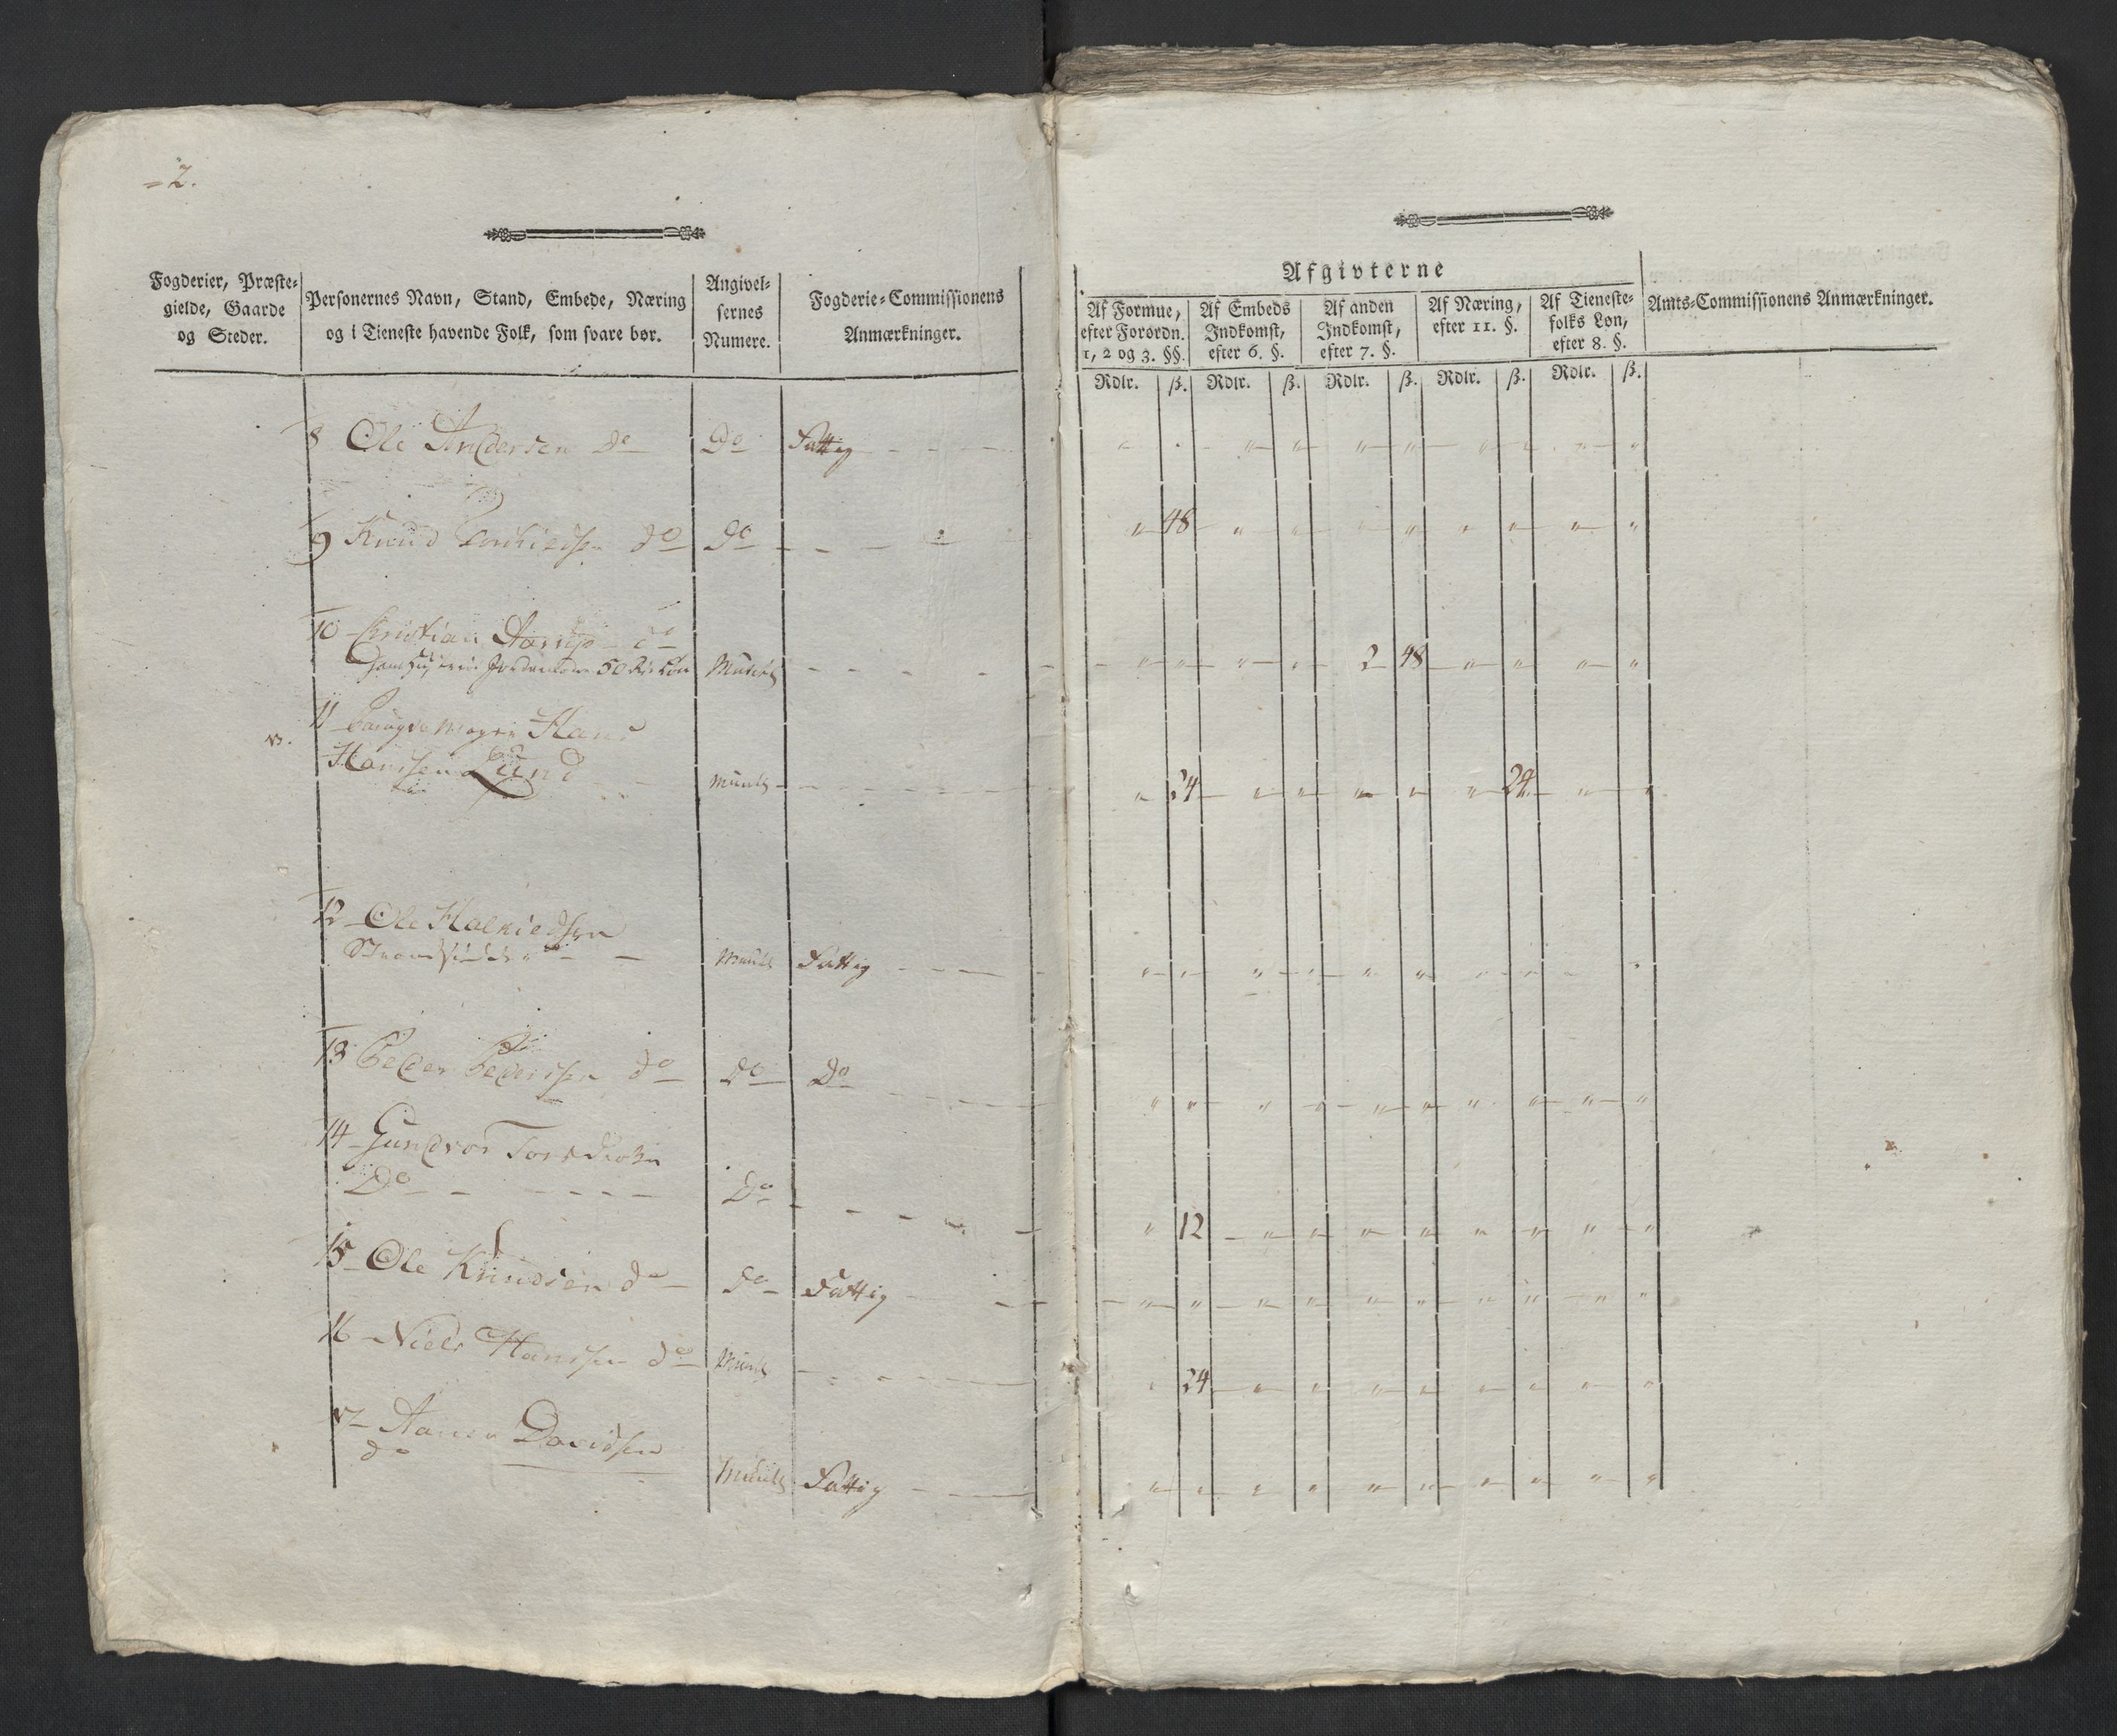 =2.
Fogderier, Præste-
gielde, Gaarde
og Steder.
Personernes Navn, Stand, Embede, Næring
og i Tieneste havende Folk, som svare bør.
Angivel-
sernes
Numere.
Fogderie-Commissionens
Anmærkninger.
Afgivterne
Af Formue,
efter Forordn.
1, 2 og 3. §§.
Af Embeds
Indkomst,
efter 6. §.
Af anden
Indkomst,
efter 7. §.
Af Næring,
efter 11. §.
Af Tieneste-
folks Løn,
efter 8. §.
Amts-Commissionens Anmærkninger.
Rdlr. ß. Rdlr. ß. Rdlr. ß. Rdlr. ß. Rdlr. ß.
8 Ole Andersen do Do Fattig
9 Knud do Do 48
10 Christian Aarup do
50 Rd Løn Mundtl 2 48
11 Hans
Hanssen Lund Mundtl 24 24
12 Ole
Strandsidder Mundtl Fattig
13 Peder Pedersen do Do Do
14 Gundvor
Do Do 12
15 Ole Knudsen do Do Fattig
16 Niels Hanssen do Mundtl 24
17 Davidsen
do Mundtl Fattig